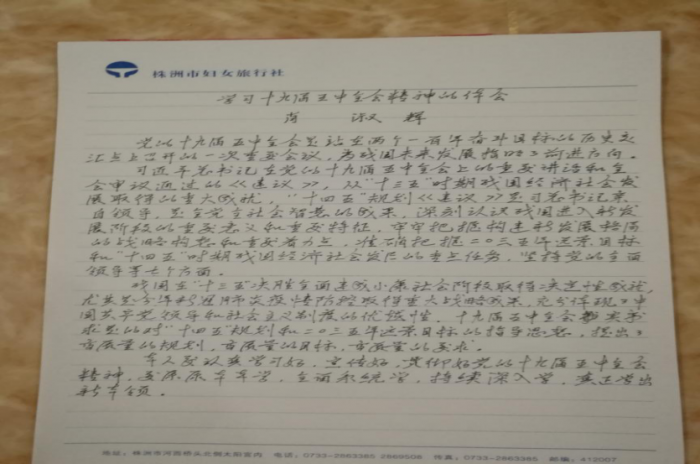 株洲市妇女旅行社
学习十九届五中全会精神的体会
淑辉
党的十九届五中全会是站在两个一百年奋斗目标的历史交
汇点上召开的一次重要会议，为我国未来发展指明了前进方向。
习近平总书记在党的十九届五中全会上的重要讲话和全
会审议通过的《建议》，对"十三五"时期我国经济社会发
展取得的重大成就，"十四五"规划《建议》是习总书记亲
自领导，是全党全社会智慧的成果，深刻认识我国进入新发
展阶段的重要意义和重要特征，牢牢把握构建新发展格局
的战略构想和重要着力点，准确把握二〇三五年远景目标
和"十四五"时期我国经济社会发展的重点任务，坚持党的全面
领导等七个方面。
我国在"十三五"决胜全面建成小康社会阶段取得决定性成就，
尤其是今年新冠肺炎疫情防控取得重大战略成果，充分体现了中
国共产党领导和社会主义制度的优越性。十九届五中全会
的对"十四五"规划和二〇三五年远景目标的指导思想，提出了
高质量的规划，高质量的目标，高质量的要求。
本人要认真学习好，宣传好，贯彻好党的十九届五中全会
精神，要原原本本学，全面系统学，持续深入学，真正学出
新本领。
地址：株洲市河西桥头北侧太阳宫内 电话：0733-2863385 2869508 传真：0733-2863385 邮编：412007